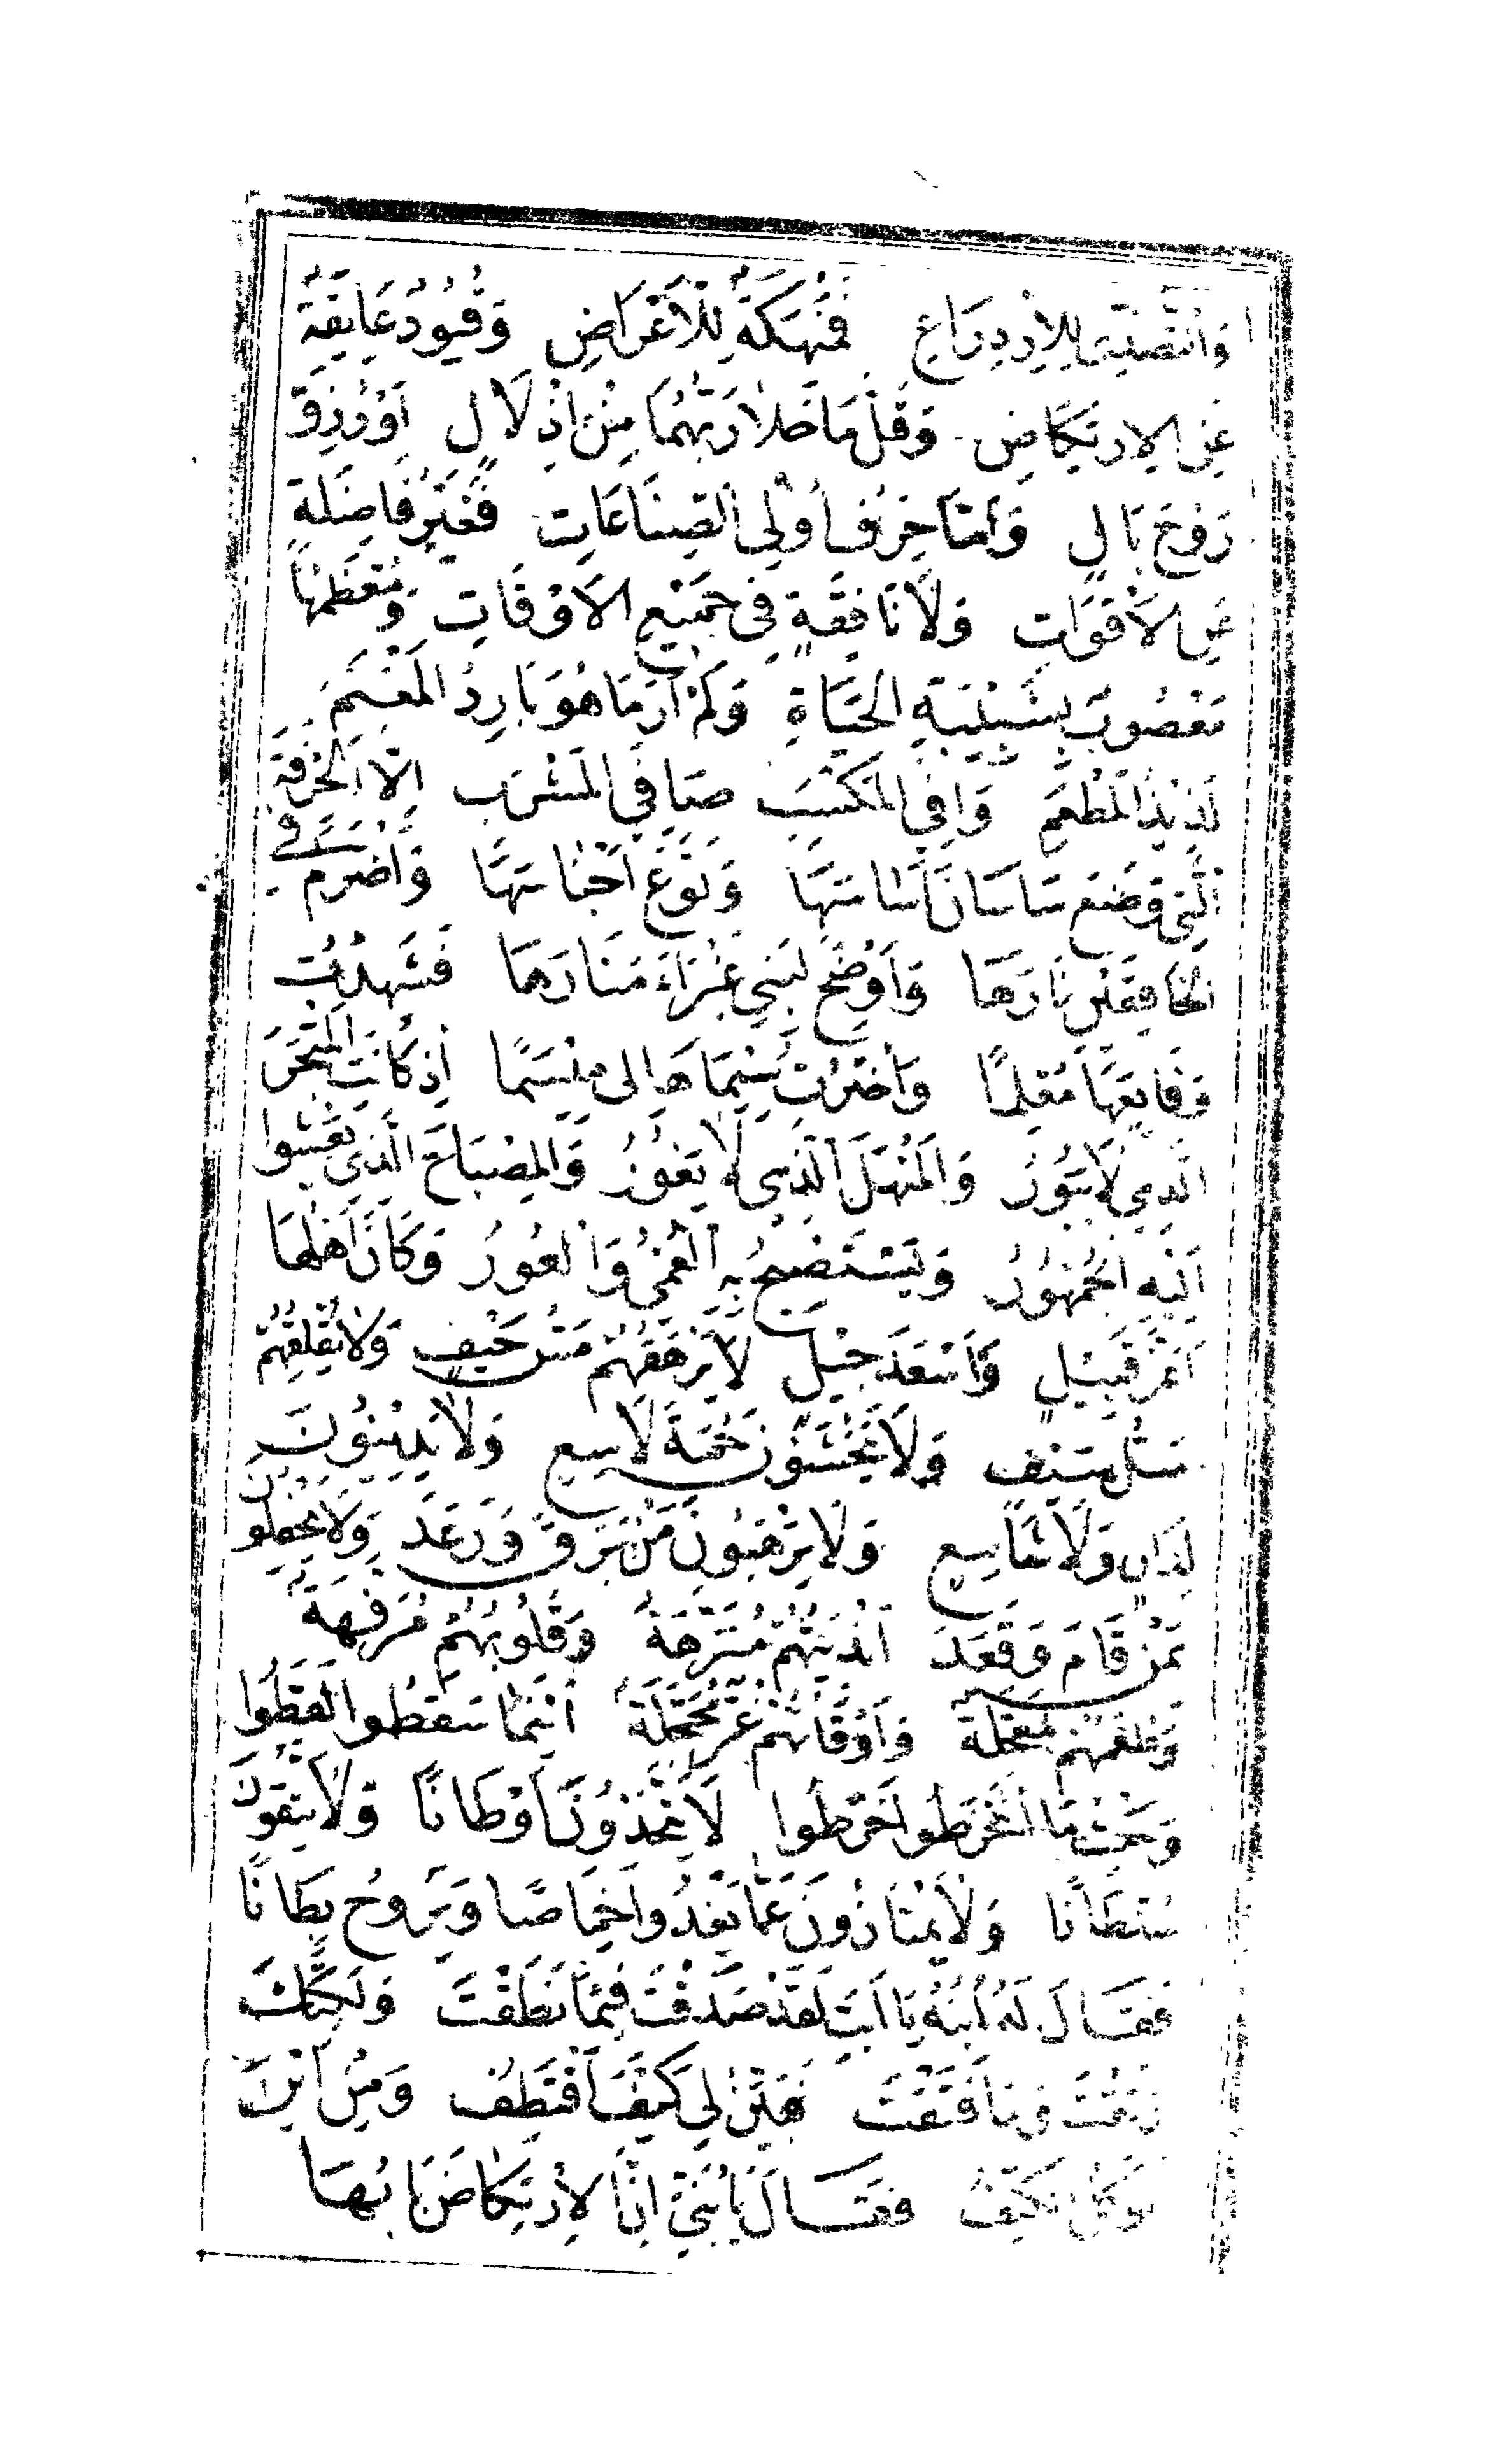 وَالتَّصَدِّي لِلِازْدِرَاعِ فَمُنْهِكَةٌ لِلْأَعْرَاضِ وَقُيُودٌ عَايِقَةٌ
عَنِ الِارْتِكَاضِ وَقَلَّ مَا خَلَا رَبُّهُمَا مِنْ اِذْلَالٍ اَوْ رُزِقَ
رَوْحَ بَالٍ وَاَمَّا حِرَفُ اُولِي الصِّنَاعَاتِ فَغَيْرُ فَاضِلَةٍ
عَنِ الْاَقْوَاتِ وَلَا نَافِقَةٍ فِي جَمِيعِ الْاَوْقَاتِ وَمُعْظَمُهَا
مَعْصُوبٌ بِشَبِيْبَةِ الْحَيَاةِ وَلَمْ اَرَ مَا هُوَ بَارِدُ الْمَغْنَمِ
لَذِيذُ الْمَطْعَمِ وَافِي الْمَكْسَبِ صَافِي الْمَشْرَبِ اِلَّا الْحِرْفَةَ
الَّتِي وَضَعَ سَاسَانُ اَسَاسَهَا وَنَوَّعَ اَجْنَاسَهَا وَاَضْرَمَ فِي
الْخَافِقَيْنِ نَارَهَا وَاَوْضَحَ لِبَنِي غَبْرَاءَ مَنَارَهَا فَشَهِدْتُ
وَقَايِعَهَا مُعْلِمًا وَاخْتَرْتُ سِيْمَاهَا لِي مِيْسَمًا اِذْ كَانَتِ الْمَتْجَرَ
الَّذِي لَا يَبُورُ وَالْمَنْهَلَ الَّذِي لَا يَغُورُ وَالْمِصْبَاحَ الَّذِي يَعْشُوا
اِلَيْهِ الْجُمْهُورُ وَيَسْتَصْبِحُ بِهِ الْعُمْيُ وَالْعُورُ وَكَانَ اَهْلُهَا
اَعَزَّ قَبِيْلٍ وَاَسْعَدَ جِيْلٍ لَا يَرْهَقُهُمْ مَسُّ حَيْفٍ وَلَا يُقْلِقُهُمْ
سَلُّ سَيْفٍ وَلَا يَخْشَوْنَ حُمَةَ لَاسِعٍ وَلَا يَدِيْنُونَ
لِدَانٍ وَلَا شَاسِعٍ وَلَا يَرْهَبُونَ مَنْ بَرَقَ وَرَعَدَ وَلَا يَحْفِلُونَ
بِمَنْ قَامَ وَقَعَدَ اَنْدِيَتُهُمْ مُنَزَّهَةٌ وَقُلُوبُهُمْ مُرَفَّهَةٌ
وَطُعَمُهُمْ مُعَجَّلَةٌ وَاَوْقَاتُهُمْ غُرٌّ مُحَجَّلَةٌ اَيْنَمَا سَقَطُوا لَقَطُوا
وَحَيْثُمَا انْخَرَطُوا خَرَطُوا لَا يَتَّخِذُونَ اَوْطَانًا وَلَا يَتَّقُونَ
سُلْطَانًا وَلَا يَمْتَازُونَ عَمَّا يَغْدُوا خِمَاصًا وَيَرُوحُ بِطَانًا
فَقَالَ لَهُ ابْنُهُ يَا اَبَتِ لَقَدْ صَدَقْتَ فِيْمَا نَطَقْتَ وَلٰكِنَّكَ
رَتَقْتَ وَمَا فَتَقْتَ فَبَيِّنْ لِي كَيْفَ اَقْتَطِفُ وَمِنْ اَيْنَ
تُؤْكَلُ الْكَتِفُ فَقَالَ يَا بُنَيَّ اِنَّ الِارْتِكَاضَ بَابُهَا